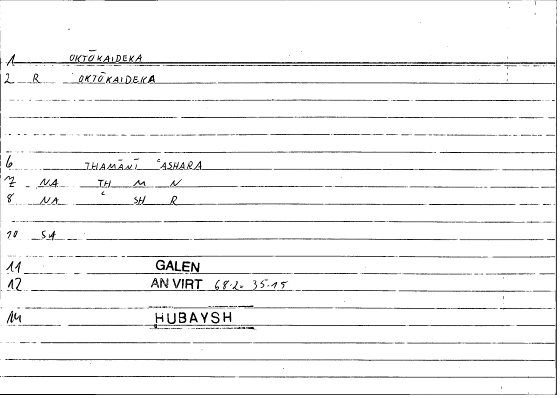 1 OKTŌKAIDEKA
2 R OKTŌKAIDEKA
6 THAMĀNĪ ʿASHARA
7 NA TH M N
8 NA ʿ SH R
10 SA
11 GALEN
12 AN VIRT 68.2- 35.15
14 ḤUBAYSH